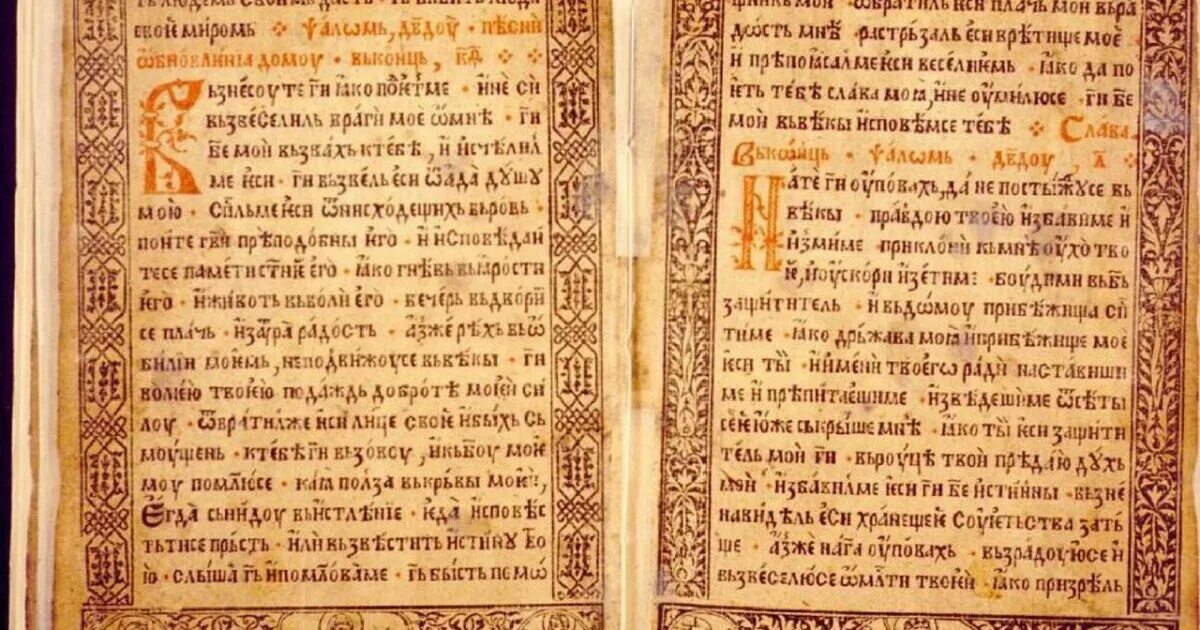 ть людемь своимь дасть · гь бл҃вить люди
своѥ миромь · ѱаломь, дв҃доу · пѣсни
ѡбновлꙗниꙗ домоу · вьконць, к҃ѳ
Вьзнесоу те гн҃ ꙗко поѥтме · и не си
вьзвеселиль враги моѥ ѡ мнѣ · гн҃
б҃е мои вьзвахь к тебѣ, и исчѣлил
ме ѥси · гн҃ вьзвель ѥси ѿ ада дꙋшꙋ
мою · сп҃ль ме ѥси ѿ нисходещихь вь ровь ·
поите гв҃и прѣподобны ѥго · и исповѣдаи
те се памети ст҃ниѥ ѥго · ꙗко гнѣвь вь ꙗрости
ѥго · и животь вь воли ѥго · вечерь вьдвори
се плачь · и заꙋтра радость · аз же рѣхь вь ѡ
билии моѥмь, не подвижоу се вь вѣкы · гн҃
волѥю твоѥю подаждь добротѣ моѥи си
лоу · ѿврати же ѥси лице своѥ и быхь сь
моущень · к тебѣ гн҃ вьзовоу, и кь боу моѥ
моу помлю се · каꙗ полза вь крьвы моѥи,
Ѥгда сьнидоу вь истлѣниѥ · ѥда исповѣс
ть ти се прьсть · или вьзвѣстить истинꙋ тво
ю · слыша гь и помлова ме · гь бысть помѡ
щникь мои · ѡбратиль ѥси плачь мои вь ра
дѡсть мнѣ · растрьзаль ѥси врѣтище моѥ
и прѣпоꙗсал ме ѥси веселиѥмь · ꙗко да по
ѥть тебѣ слава моꙗ, и не оумилю се · гн҃ б҃е
мои вь вѣкы исповѣм се тебѣ · Слава.
Вьконць · ѱаломь · дв҃доу, л҃
На те гн҃ оуповахь, да не постыжꙋ се вь
вѣкы · правдою твоѥю избави ме и
изми ме · приклони кь мнѣ оухо тво
ѥ, и оускори изети ме · боуди ми вь б҃ь
защитителꙿ · и вь дѡмоу прибѣжища сп҃
ти ме · ꙗко дрьжава моꙗ и прибѣжище моѥ
ѥси ты · и имени твоего ради наставиши
ме и прѣпитаѥши ме · изведеши ме ѿ сѣты
сеѥ юже ськрыше мнѣ · ꙗко ты ѥси защити
тель мои гн҃ · вь роуцѣ твои прѣдаю дꙋхь
мои · избавил ме ѥси гн҃ б҃е истинны · вьзне
навидѣль ѥси хранещеѥ соуѥтьства зать
ще · аз же на га оуповахь · вьзрадоую се и
вьзвеселю се ѡ млти твоѥи · ꙗко призрѣль